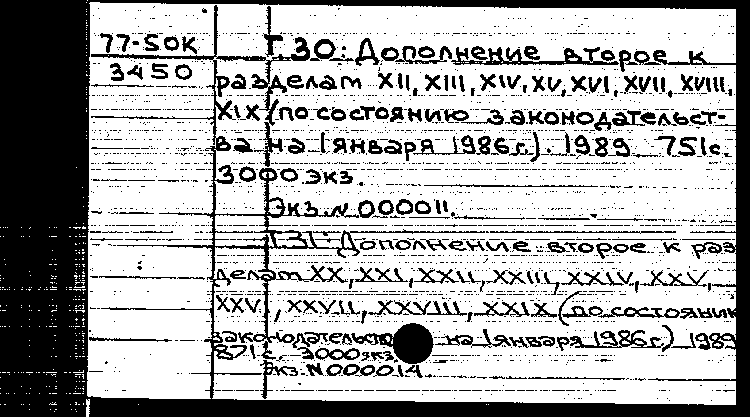 77-50К
3450
Т.30: Дополнение второе к
разделам XII, XIII, XIV, XV, XVI, XVII, XVIII,
XIX (по состоянию законодательст-
ва на 1 января 1986г.). 1989 751с.
3000 экз.
Экз.N 000011.
Т.31: Дополнение второе к раз
делам XX, XXI, XXII, XXIII, XXIV, XXV,
XXVI, XXVII, XXVIII, XXIX (по состоянию
законодательств на 1 января 1986г.) 1989
871 с. 3000 экз.
Экз.N 000014